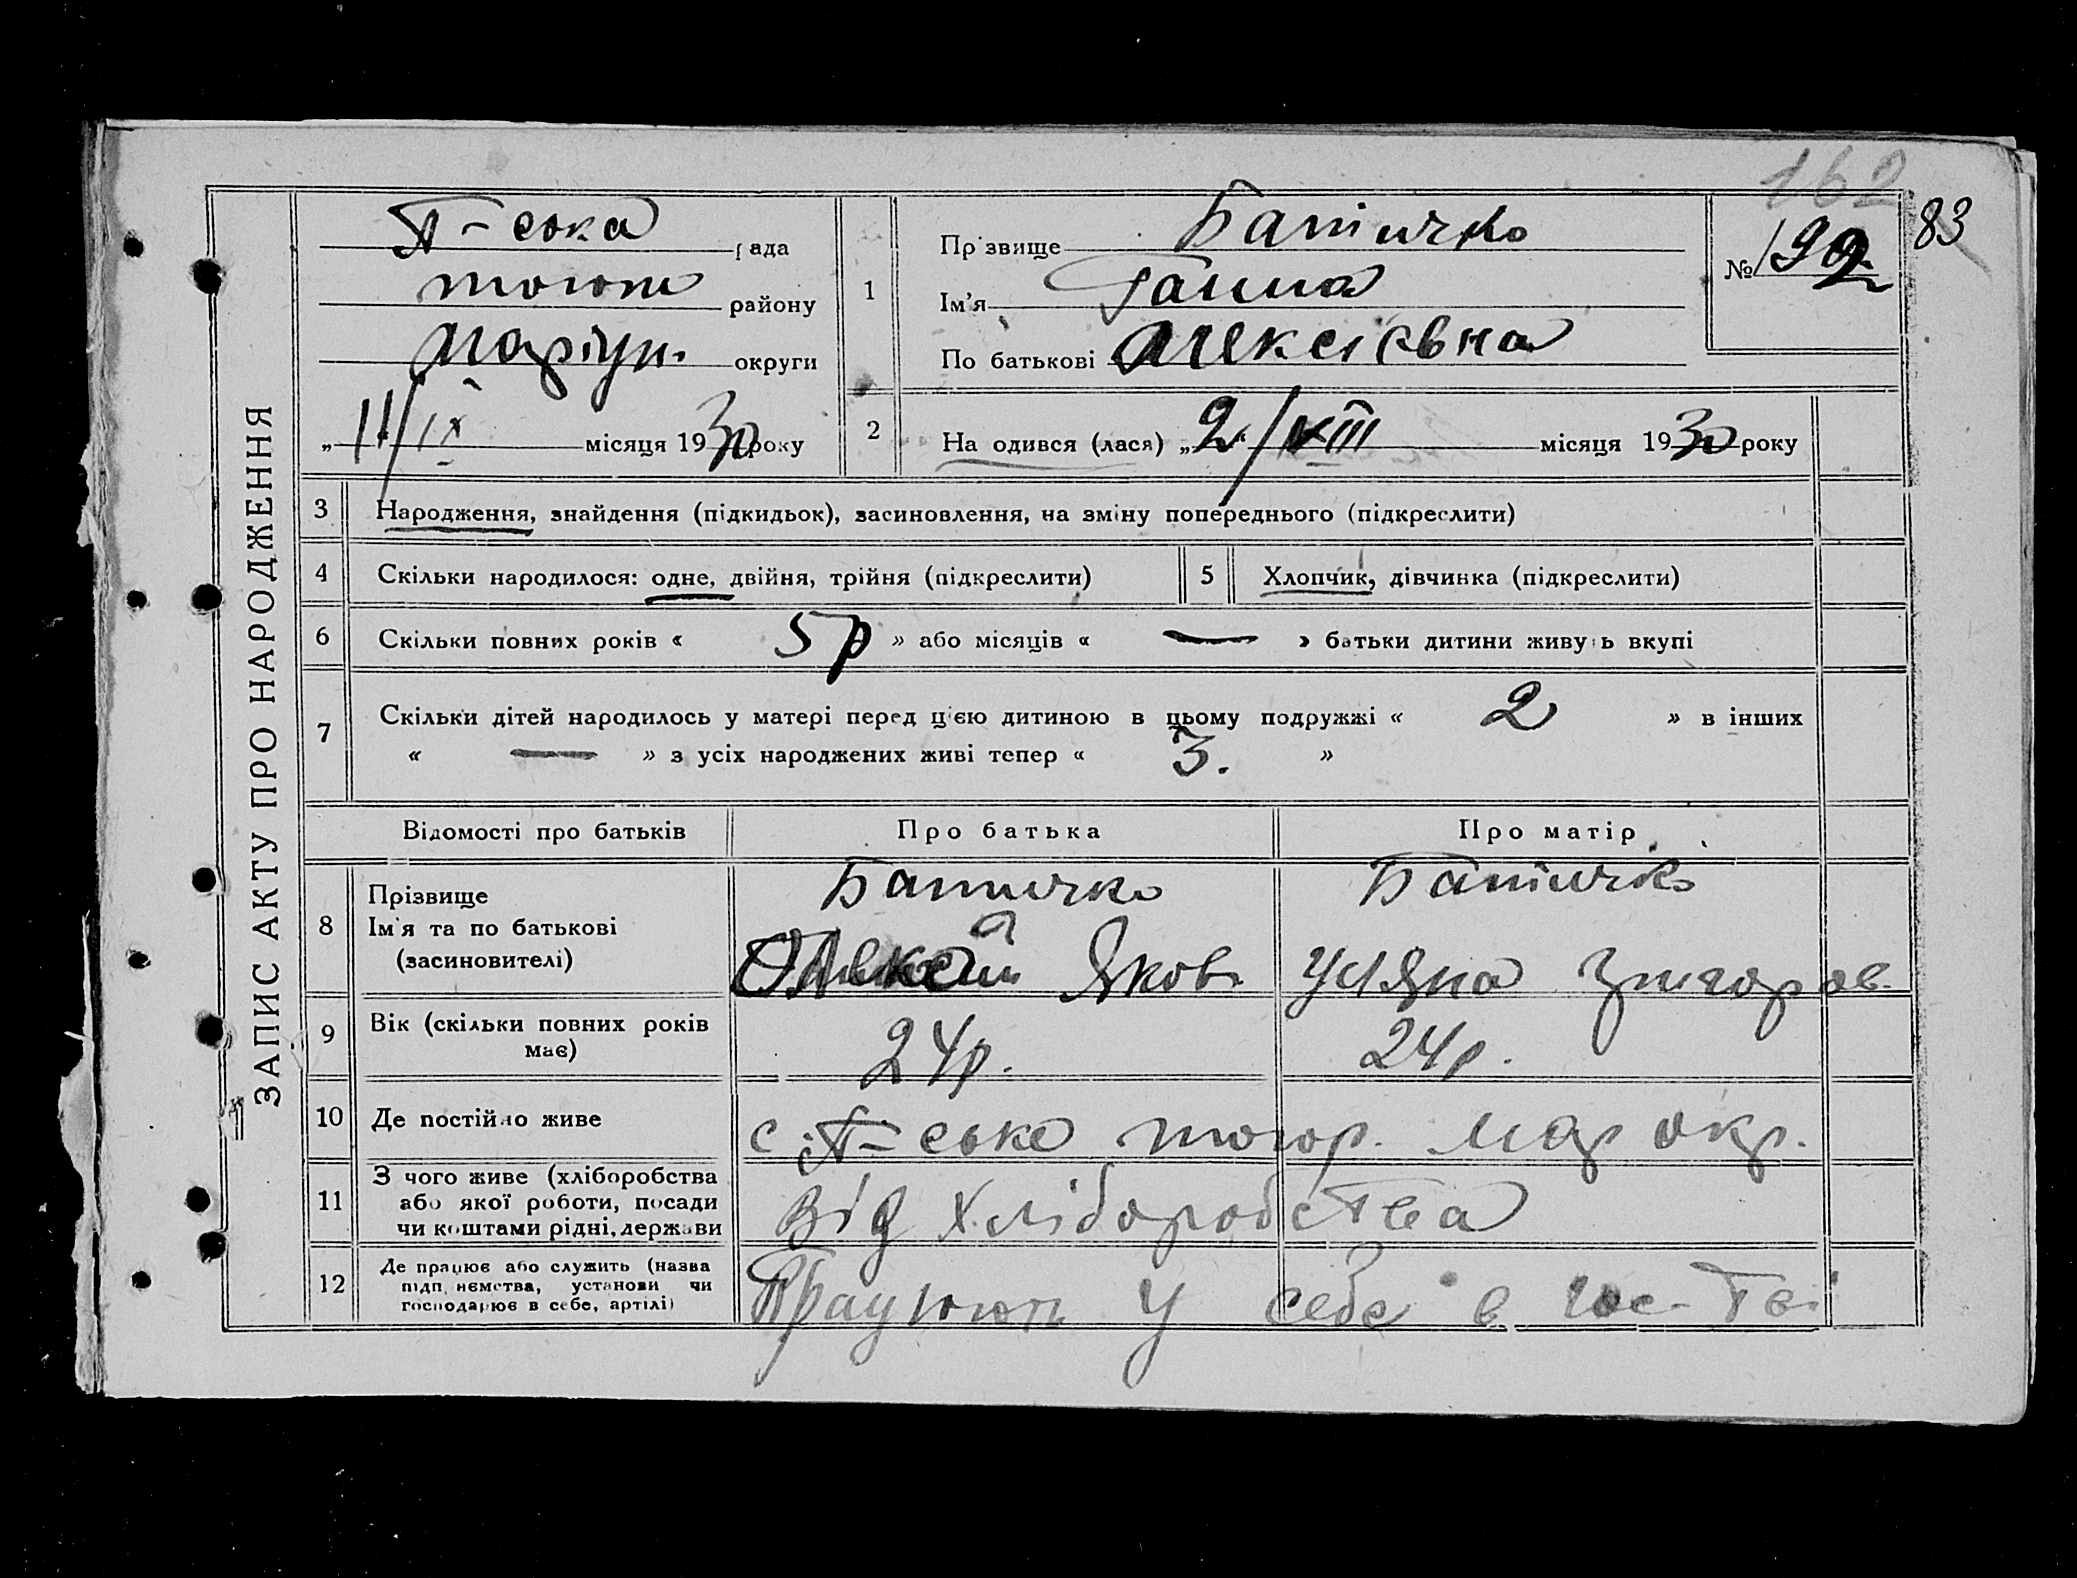 162
83
ЗАПИС АКТУ ПРО НАРОДЖЕННЯ
П-ська рада
тогож району
Маріуп. округи
„11/IX місяця 1930 року
1
Прізвище Батичко
Ім'я Ганна
По батькові Алексієвна
№ 192
2
На одився (лася) „2“/VIII місяця 1930 року
3 Народження, знайдення (підкидьок), засиновлення, на зміну попереднього (підкреслити)
4 Скільки народилося: одне, двійня, трійня (підкреслити) 5 Хлопчик, дівчинка (підкреслити)
6 Скільки повних років « 5 р » або місяців « — » батьки дитини живуть вкупі
7 Скільки дітей народилось у матері перед цією дитиною в цьому подружжі « 2 » в інших
« — » з усіх народжених живі тепер « 3. »
Відомості про батьків Про батька Про матір
8 Прізвище
Ім'я та по батькові
(засиновителі)
Батичко
Яков
Батичко
Уляна Григоров
9 Вік (скільки повних років
має)
24 р.
24 р.
10 Де постійно живе
с. П-ське тогор. Мар окр.
11 З чого живе (хліборобства
або якої роботи, посади
чи коштами рідні, держави
Від хліборобства
12 Де працює або служить (назва
підприємства, установи чи
господарює в себе, артілі)
Працюют у себе в гос-тві